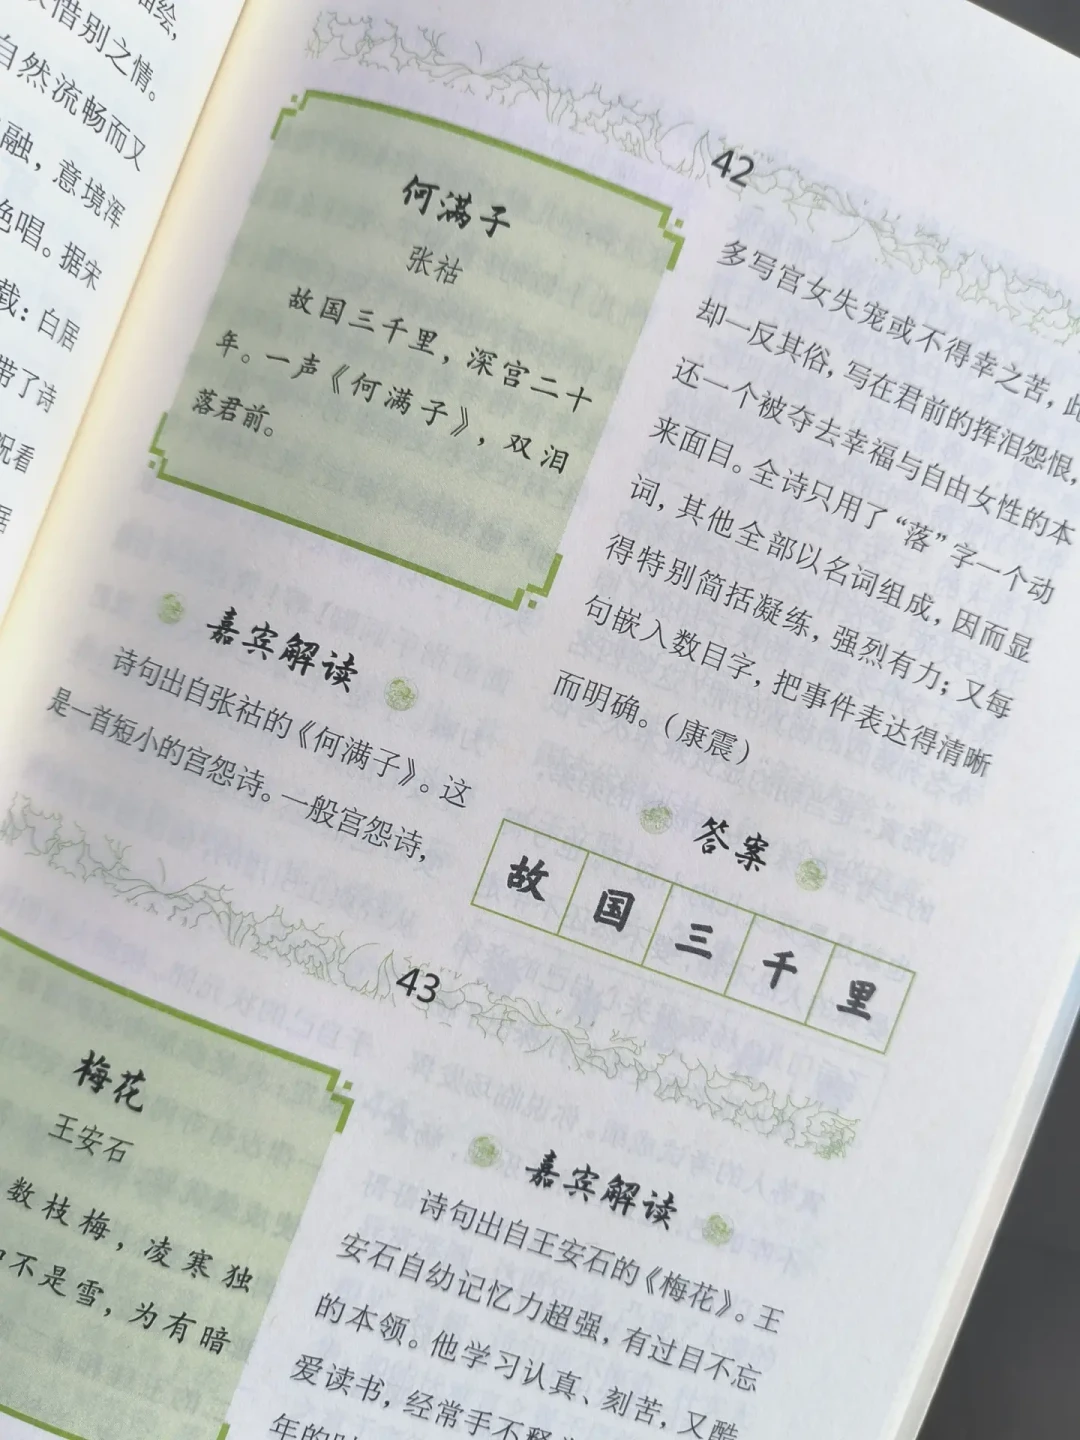 惜别之情。
自然流畅而又
融，意境浑
绝唱。据宋
载：白居
带了诗
况看
居
42
何满子
张祜
故国三千里，深宫二十
年。一声《何满子》，双泪
落君前。
嘉宾解读
诗句出自张祜的《何满子》。这
是一首短小的宫怨诗。一般宫怨诗，
多写宫女失宠或不得幸之苦，此
却一反其俗，写在君前的挥泪怨恨，
还一个被夺去幸福与自由女性的本
来面目。全诗只用了“落”字一个动
词，其他全部以名词组成，因而显
得特别简括凝练，强烈有力；又每
句嵌入数目字，把事件表达得清晰
而明确。（康震）
答案
故国三千里
43
梅花
王安石
数枝梅，凌寒独
不是雪，为有暗
嘉宾解读
诗句出自王安石的《梅花》。王
安石自幼记忆力超强，有过目不忘
的本领。他学习认真、刻苦，又酷
爱读书，经常手不释
年的